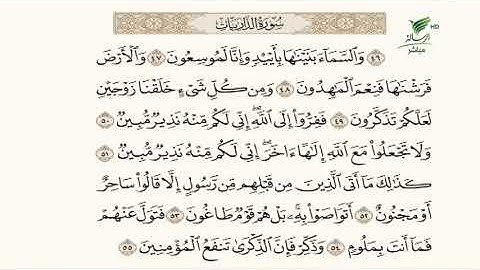 سُورَةُ الذَّارِيَاتِ
الرسالة HD
مباشر
٤٦ وَالسَّمَاءَ بَنَيْنَاهَا بِأَيْيْدٍ وَإِنَّا لَمُوسِعُونَ ٤٧ وَالْأَرْضَ
فَرَشْنَاهَا فَنِعْمَ الْمَاهِدُونَ ٤٨ وَمِن كُلِّ شَيْءٍ خَلَقْنَا زَوْجَيْنِ
لَعَلَّكُمْ تَذَكَّرُونَ ٤٩ فَفِرُّوا إِلَى اللَّهِ ۖ إِنِّي لَكُم مِّنْهُ نَذِيرٌ مُّبِينٌ ٥٠
وَلَا تَجْعَلُوا مَعَ اللَّهِ إِلَٰهًا ءَاخَرَ ۖ إِنِّي لَكُم مِّنْهُ نَذِيرٌ مُّبِينٌ ٥١
كَذَٰلِكَ مَا أَتَى الَّذِينَ مِن قَبْلِهِم مِّن رَّسُولٍ إِلَّا قَالُوا سَاحِرٌ
أَوْ مَجْنُونٌ ٥٢ أَتَوَاصَوْا بِهِ ۚ بَلْ هُمْ قَوْمٌ طَاغُونَ ٥٣ فَتَوَلَّ عَنْهُمْ
فَمَا أَنتَ بِمَلُومٍ ٥٤ وَذَكِّرْ فَإِنَّ الذِّكْرَىٰ تَنفَعُ الْمُؤْمِنِينَ ٥٥